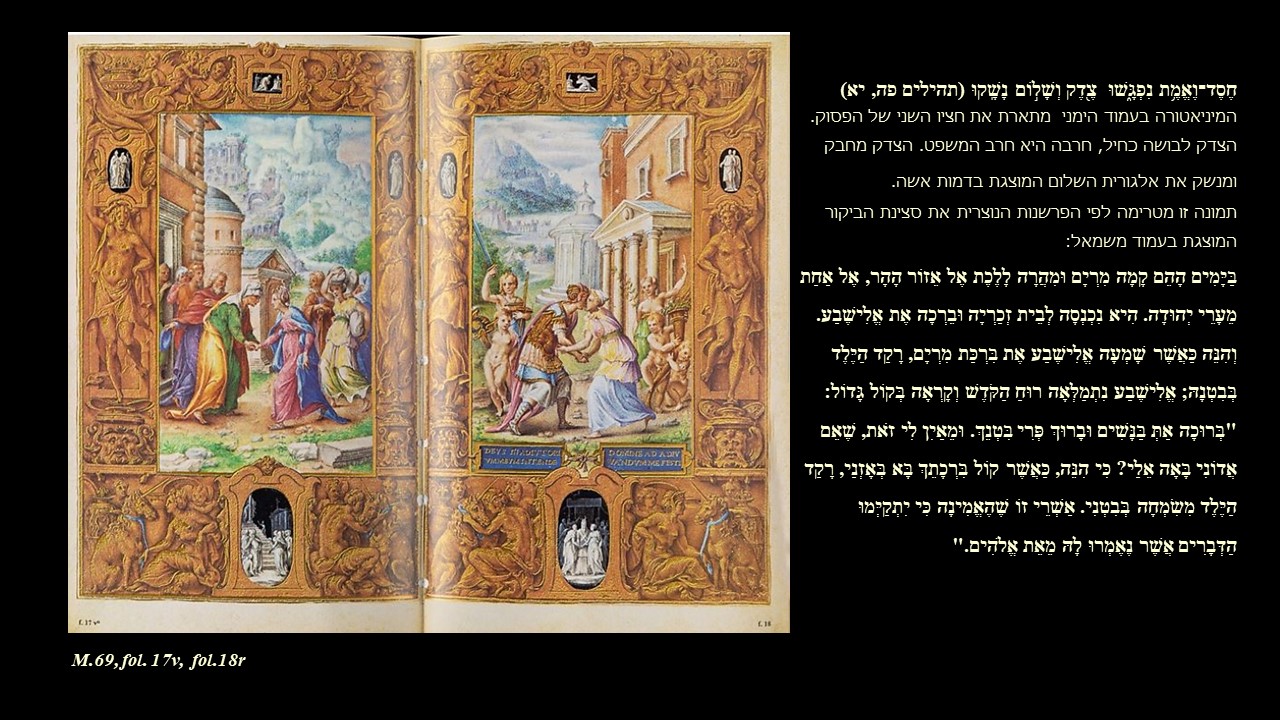 חֶסֶד־וֶאֱמֶ֥ת נִפְגָּ֑שׁוּ צֶ֖דֶק וְשָׁל֣וֹם נָשָֽׁקוּ (תהילים פה, יא)
המיניאטורה בעמוד הימני מתארת את חציו השני של הפסוק.
הצדק לבושה כחיל, חרבה היא חרב המשפט. הצדק מחבק
ומנשק את אלגורית השלום המוצגת בדמות אשה.
תמונה זו מטרימה לפי הפרשנות הנוצרית את סצינת הביקור
המוצגת בעמוד משמאל:
בַּיָּמִים הָהֵם קָמָה מִרְיָם וּמִהֲרָה לָלֶכֶת אֶל אֵזוֹר הָהָר, אֶל אַחַת
מֵעָרֵי יְהוּדָה. הִיא נִכְנְסָה לְבֵית זְכַרְיָה וּבֵרְכָה אֶת אֱלִישֶׁבַע.
וְהִנֵּה כַּאֲשֶׁר שָׁמְעָה אֱלִישֶׁבַע אֶת בִּרְכַּת מִרְיָם, רָקַד הַיֶּלֶד
בְּבִטְנָהּ; אֱלִישֶׁבַע נִתְמַלְּאָה רוּחַ הַקֹּדֶשׁ וְקָרְאָה בְּקוֹל גָּדוֹל:
"בְּרוּכָה אַתְּ בַּנָּשִׁים וּבָרוּךְ פְּרִי בִּטְנֵךְ. וּמֵאַיִן לִי זֹאת, שֶׁאֵם
אֲדוֹנִי בָּאָה אֵלַי? כִּי הִנֵּה, כַּאֲשֶׁר קוֹל בִּרְכָתֵךְ בָּא בְּאָזְנַי, רָקַד
הַיֶּלֶד מִשִּׂמְחָה בְּבִטְנִי. אַשְׁרֵי זוֹ שֶׁהֶאֱמִינָה כִּי יִתְקַיְּמוּ
הַדְּבָרִים אֲשֶׁר נֶאֶמְרוּ לָהּ מֵאֵת אֱלֹהִים."
f. 17 vº
f. 18
M.69,fol. 17v, fol.18r